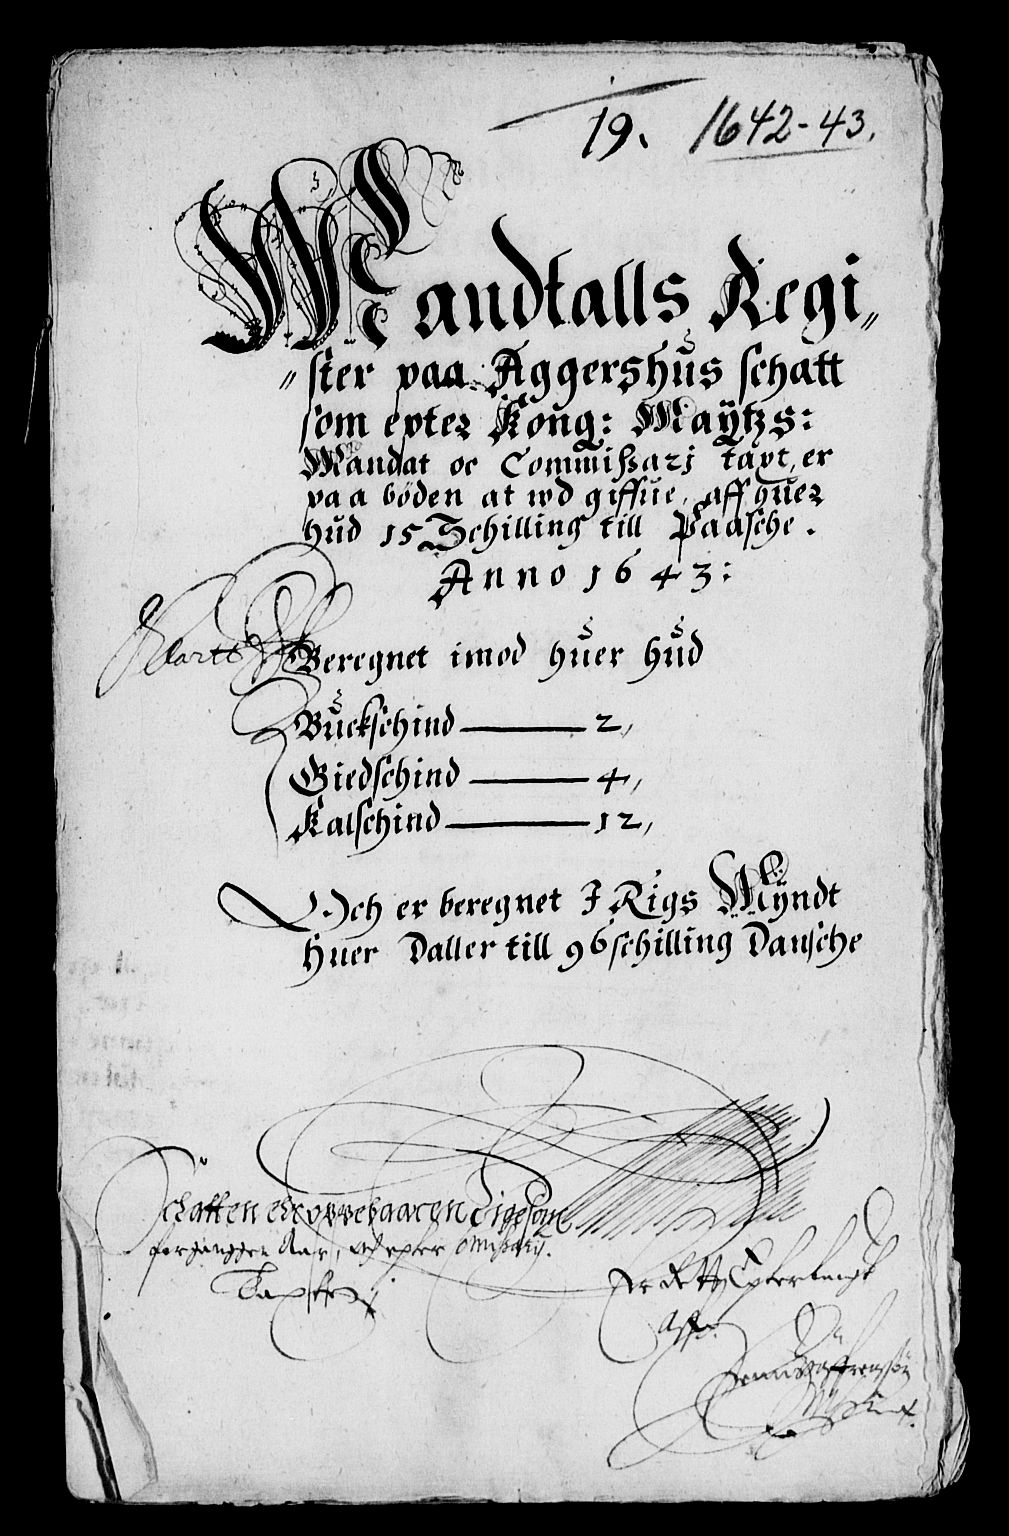 19. 1642-43.
Mandtalls Regi„
„ster paa Aggershus schatt
som epter Kong: Maÿtzs:
Mandat oc Commißarj taxt, er
paa böden at wd giffue, aff huer
hud 15 Schilling till Paasche.
Anno 1643:
Beregnet imod huer hud
Buckschind — 2,
Giedschind — 4,
Kalschind — 12,
Och er beregnet I Rigs Mÿndt
huer Daller till 96 schilling Dansche
Schatten er oppebaaren Lige som
forganggen Aar, och epter
Er dette
Aff